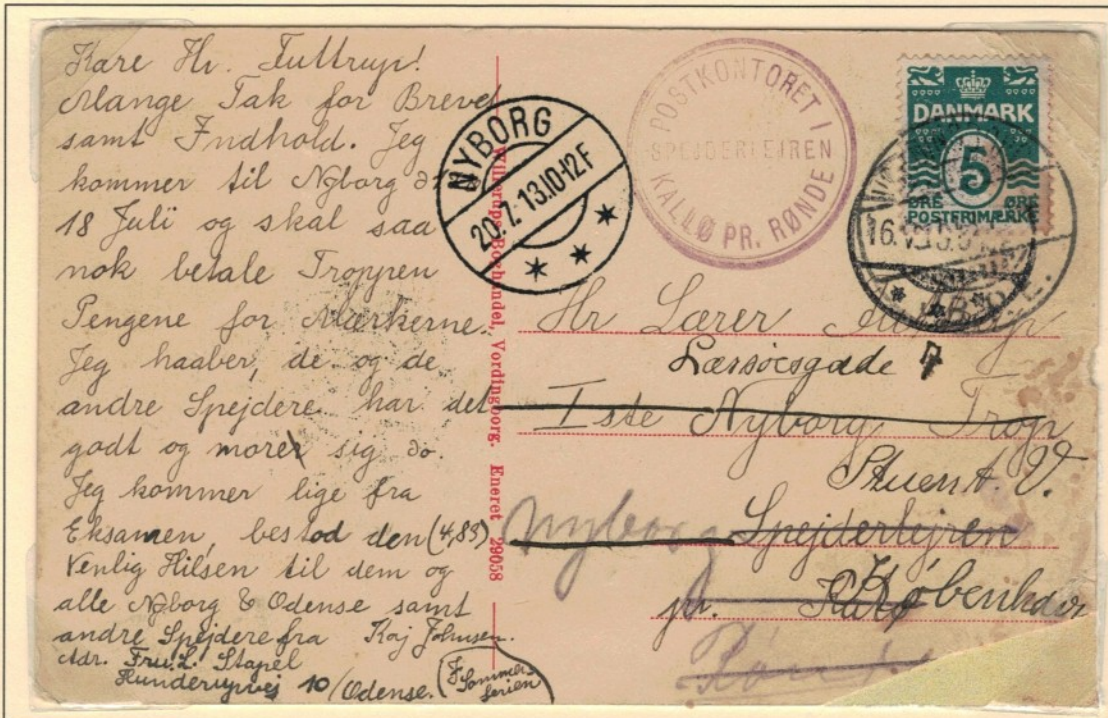 Kære Hr. Tuttrup!
Mange Tak for Brevet
samt Indhold. Jeg
kommer til Nyborg d.
18 Juli og skal saa
nok betale Troppen
Pengene for Mærkerne.
Jeg haaber, de og de
andre Spejdere har det
godt og morer sig do.
Jeg kommer lige fra
Eksamen, bestod den (4,89)
Venlig Hilsen til dem og
alle Nyborg & Odense samt
andre Spejdere fra Kaj Johnsen.
Adr. Fru L. Stapel
Hunderupvej 10 / Odense. (I Sommer-
ferien)
NYBORG
20.7.13.10-12F
Boghandel, Vordingborg. Eneret 29058
POSTKONTORET I
SPEJDERLEJREN
KALLØ PR. RØNDE
DANMARK
5
ØRE ØRE
POSTFRIMÆRKE
Hr Lærer
Læssøesgade 7
Iste Nyborg Trop
Stuen t. V.
Nyborg Spejderlejren
København
pr. Kalø